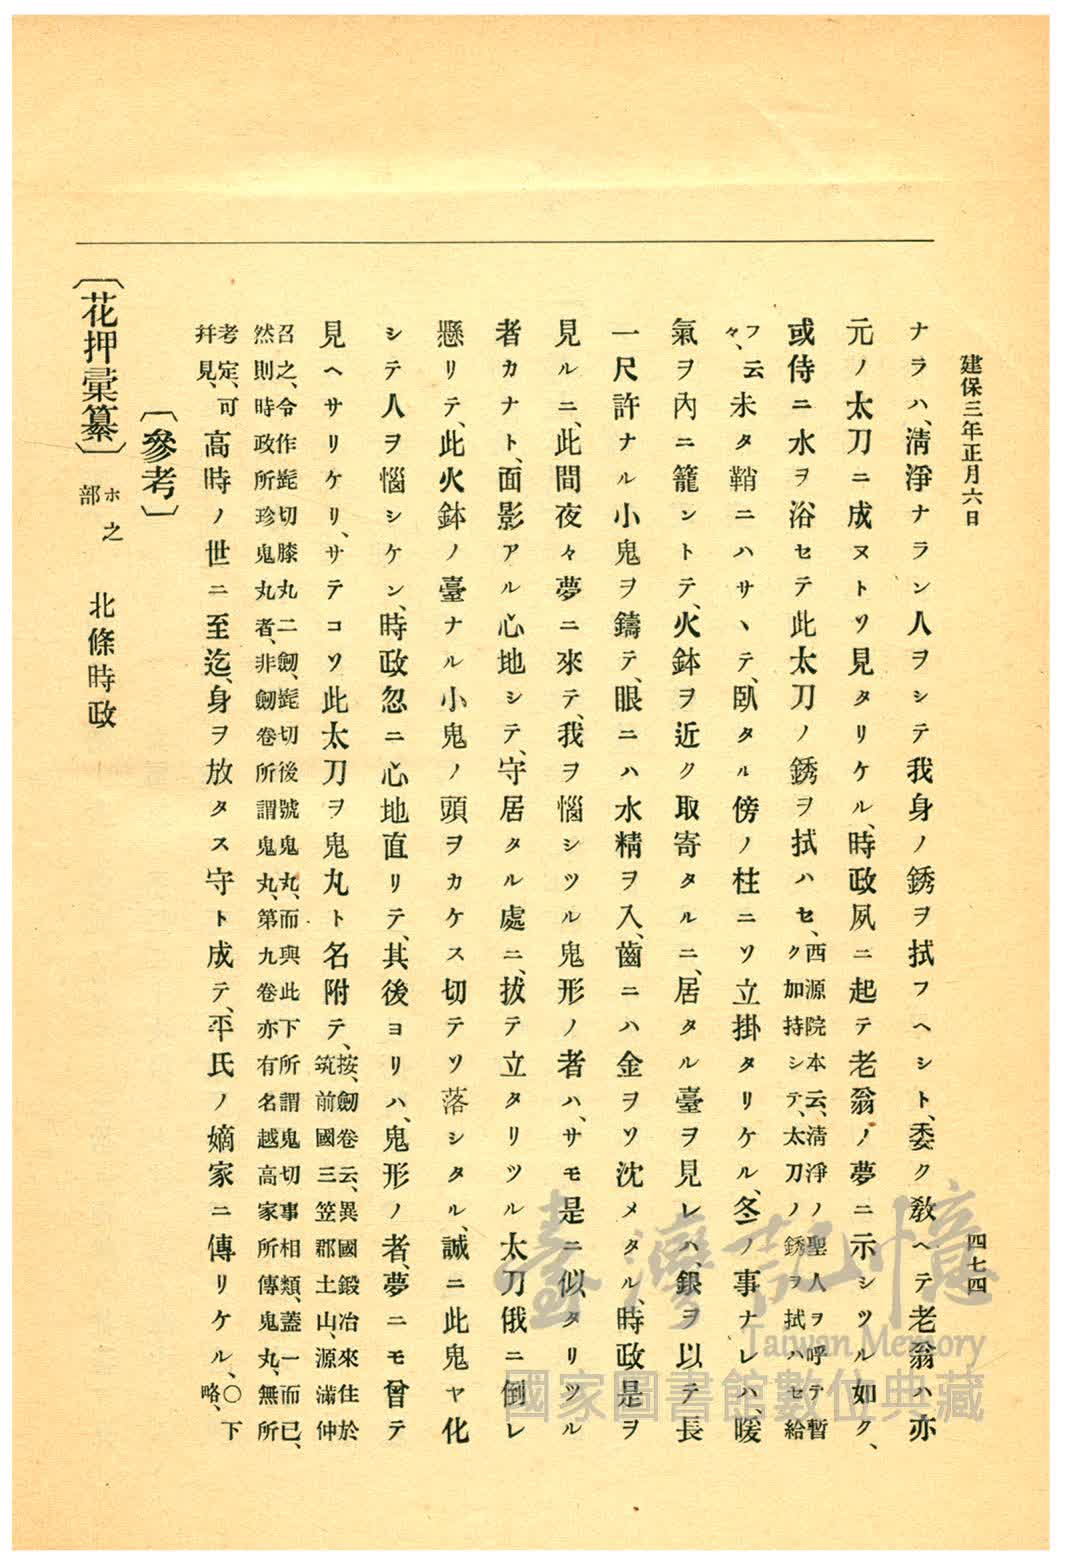 建保三年正月六日
四七四
ナラハ、淸淨ナラン人ヲシテ我身ノ銹ヲ拭フヘシト、委ク敎ヘテ老翁ハ亦
元ノ太刀ニ成ヌトソ見タリケル、時政夙ニ起テ老翁ノ夢ニ示シツル如ク、
或侍ニ水ヲ浴セテ此太刀ノ銹ヲ拭ハセ、西源院本云、淸淨ノ聖人ヲ呼テ暫
ク加持シテ、太刀ノ銹ヲ拭ハセ給
フ云
々、未タ鞘ニハサヽテ、臥タル傍ノ柱ニソ立掛タリケル、冬ノ事ナレハ、暖
氣ヲ內ニ籠ントテ、火鉢ヲ近ク取寄タルニ、居タル臺ヲ見レハ、銀ヲ以テ長
一尺許ナル小鬼ヲ鑄テ、眼ニハ水精ヲ入、齒ニハ金ヲソ沈メタル、時政是ヲ
見ルニ、此間夜々夢ニ來テ、我ヲ惱シツル鬼形ノ者ハ、サモ是ニ似タリツル
者カナト、面影アル心地シテ、守居タル處ニ、拔テ立タリツル太刀俄ニ倒レ
懸リテ、此火鉢ノ臺ナル小鬼ノ頭ヲカケス切テソ落シタル、誠ニ此鬼ヤ化
シテ人ヲ惱シケン、時政忽ニ心地直リテ、其後ヨリハ、鬼形ノ者、夢ニモ曾テ
見ヘサリケリ、サテコソ此太刀ヲ鬼丸ト名附テ、按、劒卷云、異國鍛冶來住於
筑前國三笠郡土山、源滿仲
召之、令作髭切膝丸二劒、髭切後號鬼丸、而與此下所謂鬼切事相類、蓋一而已、
然則時政所珍鬼丸者、非劒卷所謂鬼丸、第九卷亦有名越高家所傳鬼丸、無所
考定、可
幷見、高時ノ世ニ至迄、身ヲ放タス守ト成テ、平氏ノ嫡家ニ傳リケル、〇下
略、
〔參考〕
〔花押彙纂〕ホ之
部 北條時政
臺灣記憶
Taiwan Memory
國家圖書館數位典藏